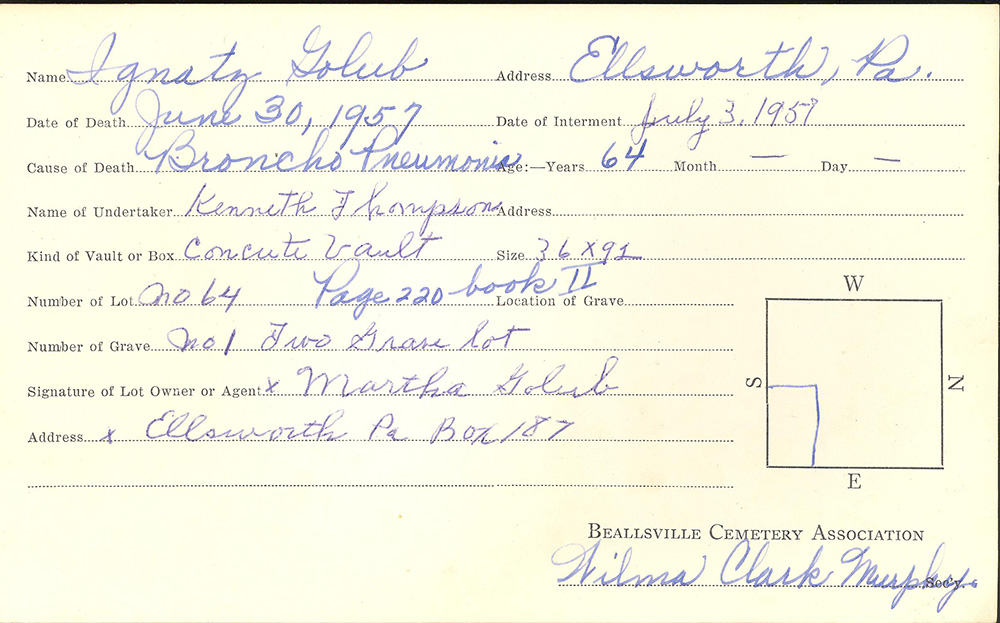 Name Ignatz Golub Address Ellsworth, Pa.
Date of Death June 30, 1957 Date of Interment July 3, 1957
Cause of Death Broncho Pneumonia Age:—Years 64 Month — Day —
Name of Undertaker Kenneth Thompson Address
Kind of Vault or Box Concrete Vault Size 36 x 91
Number of Lot no 64 Page 220 book II Location of Grave
Number of Grave no 1 Two Grave lot
Signature of Lot Owner or Agent x Martha Golub
Address x Ellsworth Pa Box 187
W
S
N
E
Beallsville Cemetery Association
Wilma Clark Murphy Sec'y.